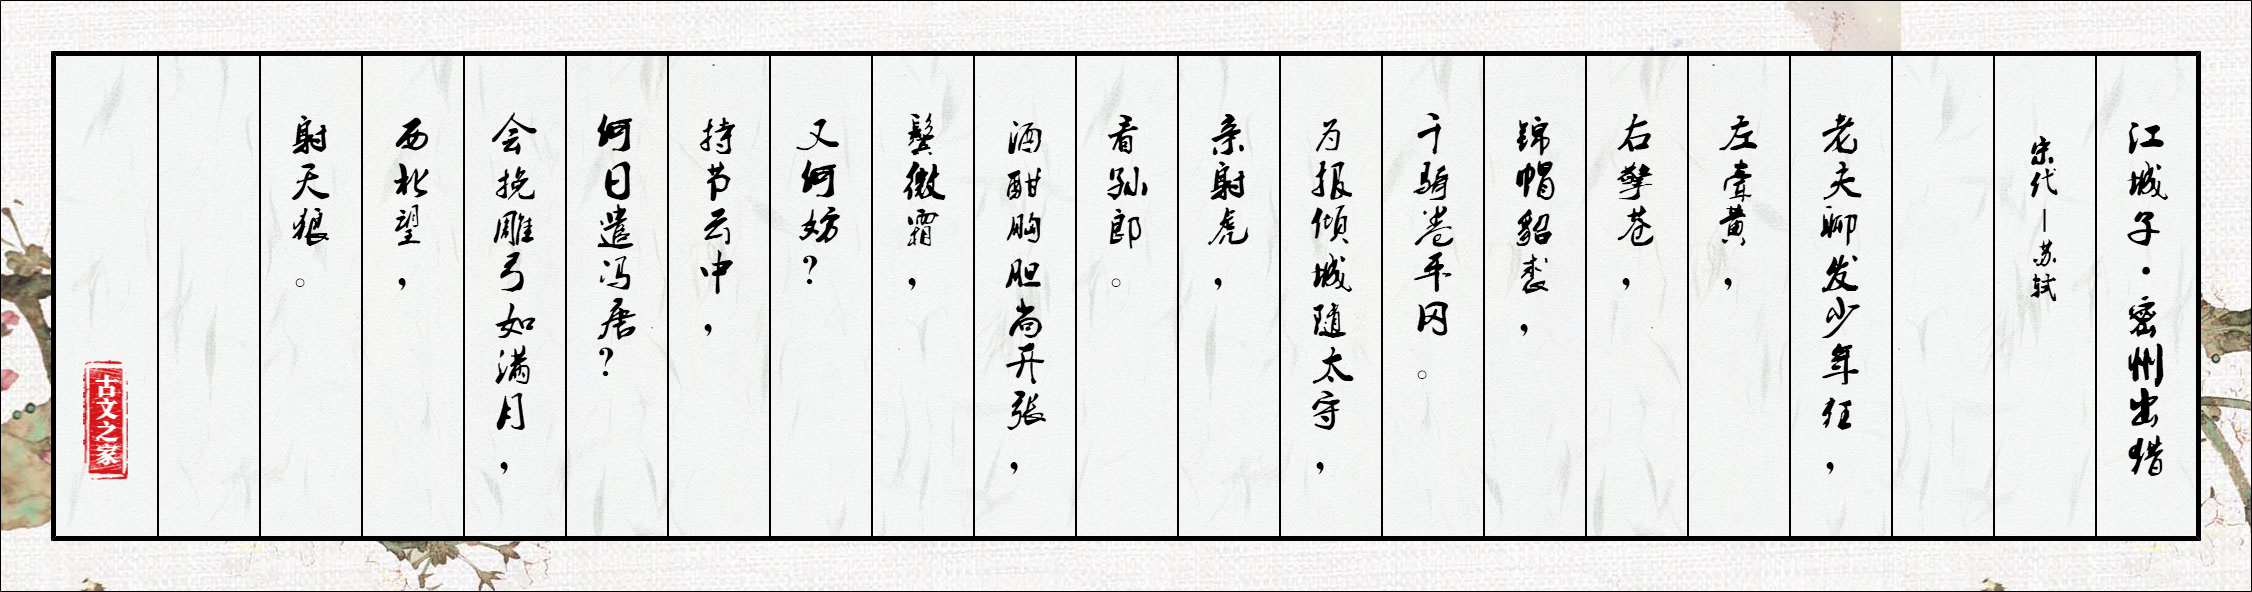 江城子·密州出猎
宋代—苏轼
老夫聊发少年狂，
左牵黄，
右擎苍，
锦帽貂裘，
千骑卷平冈。
为报倾城随太守，
亲射虎，
看孙郎。
酒酣胸胆尚开张，
鬓微霜，
又何妨？
持节云中，
何日遣冯唐？
会挽雕弓如满月，
西北望，
射天狼。
古文之家